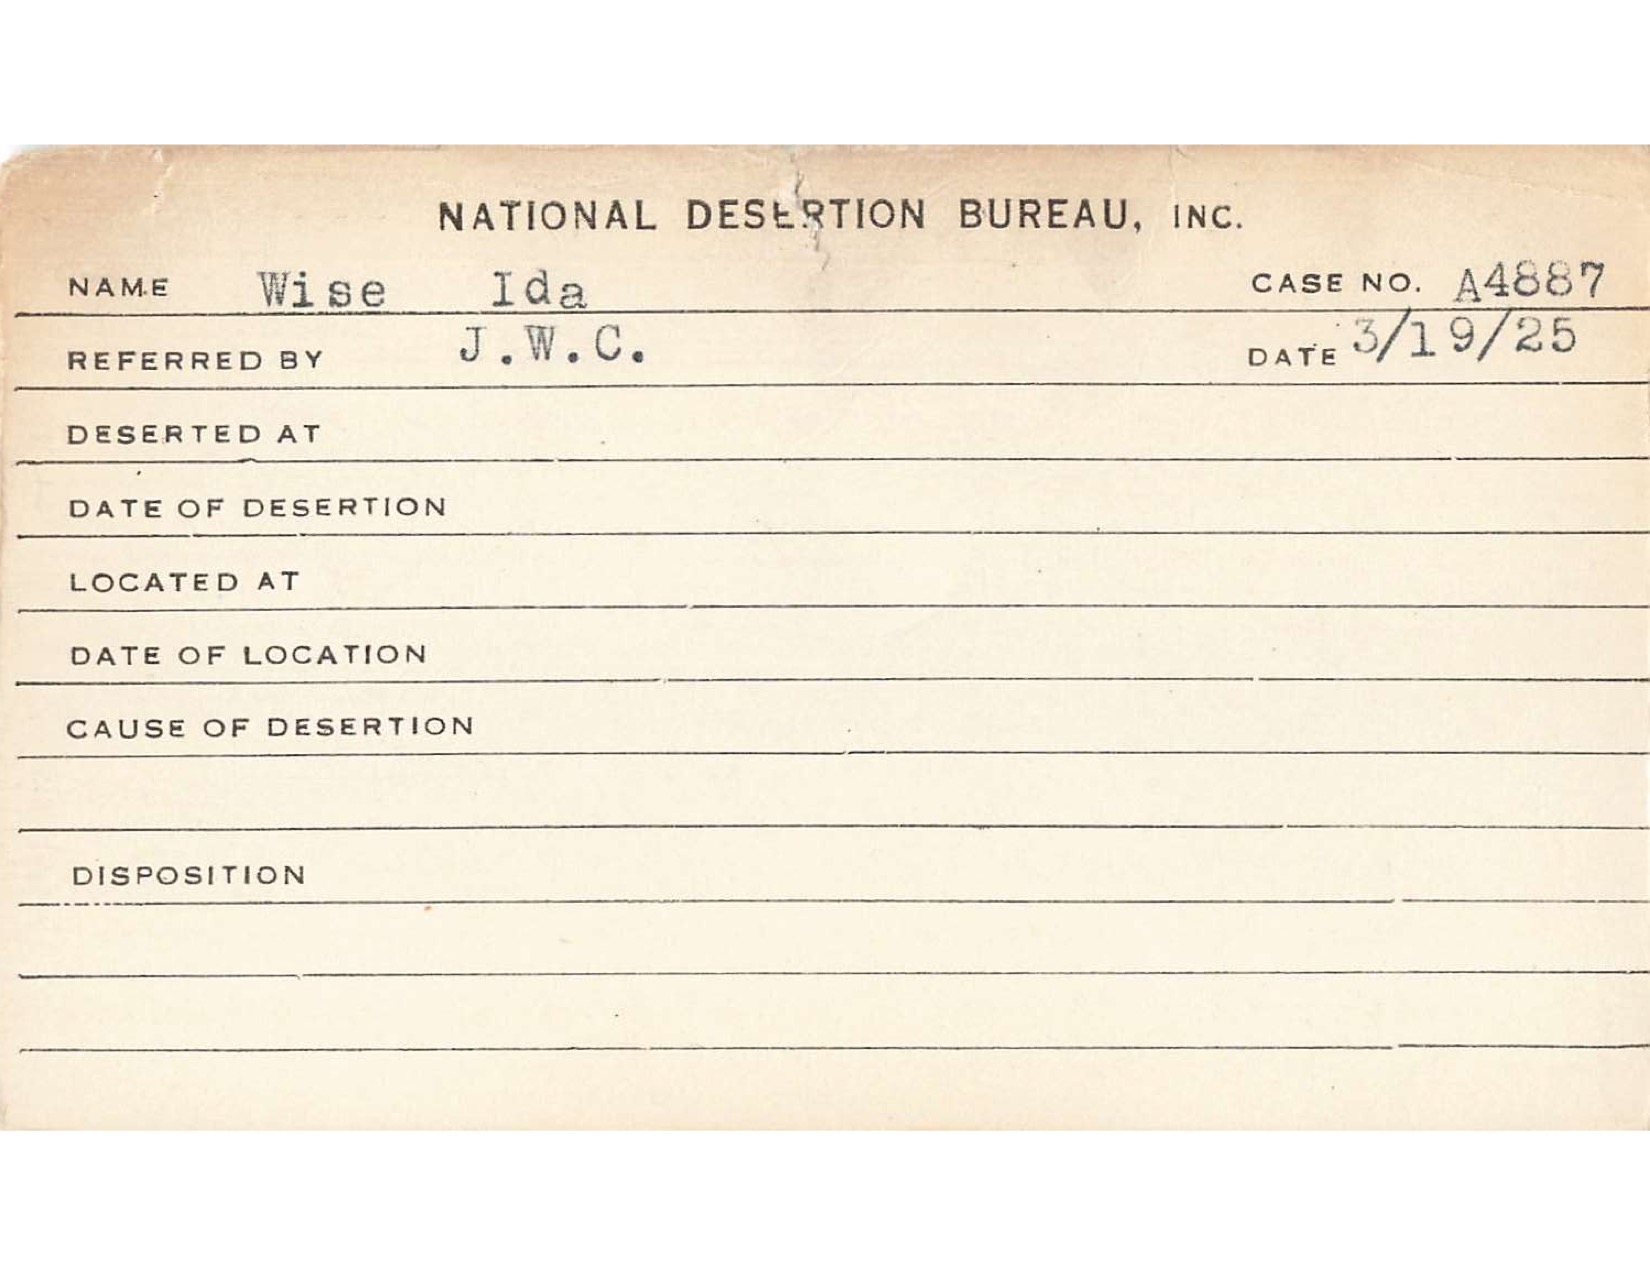 NATIONAL DESERTION BUREAU, INC.
NAME Wise Ida CASE NO. A4887
REFERRED BY J.W.C. DATE 3/19/25
DESERTED AT
DATE OF DESERTION
LOCATED AT
DATE OF LOCATION
CAUSE OF DESERTION
DISPOSITION